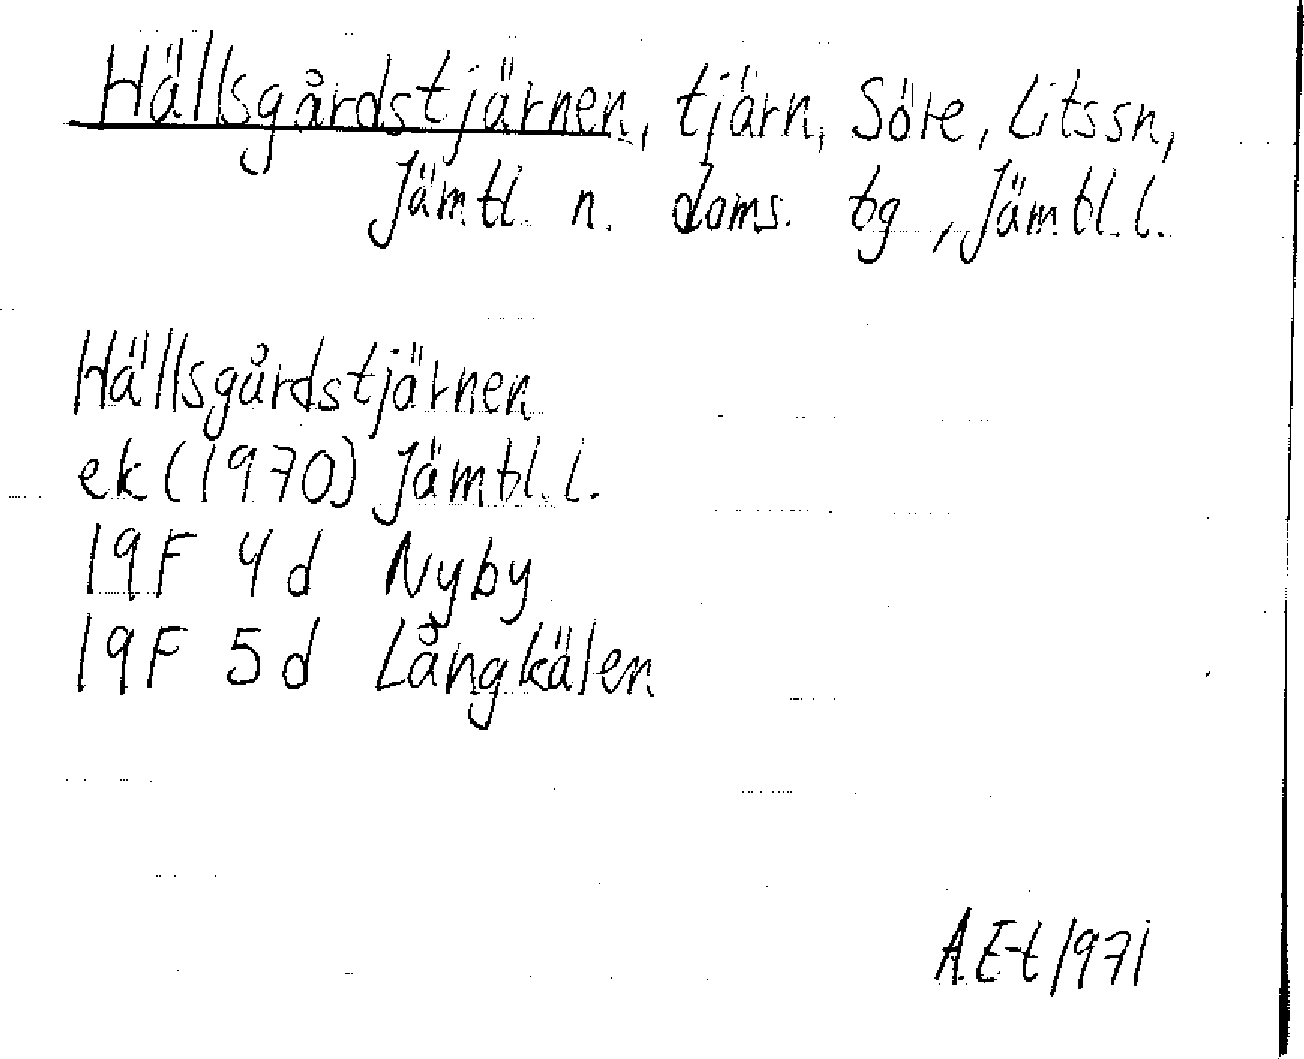 Hällsgårdstjärnen, tjärn, Söre, Litssn,
Jämtl. n. doms. tg, Jämtl. l.
Hällsgårdstjärnen
ek (1970) Jämtl. l.
19F 4d Nyby
19F 5d Långkälen
A.E-t 1971